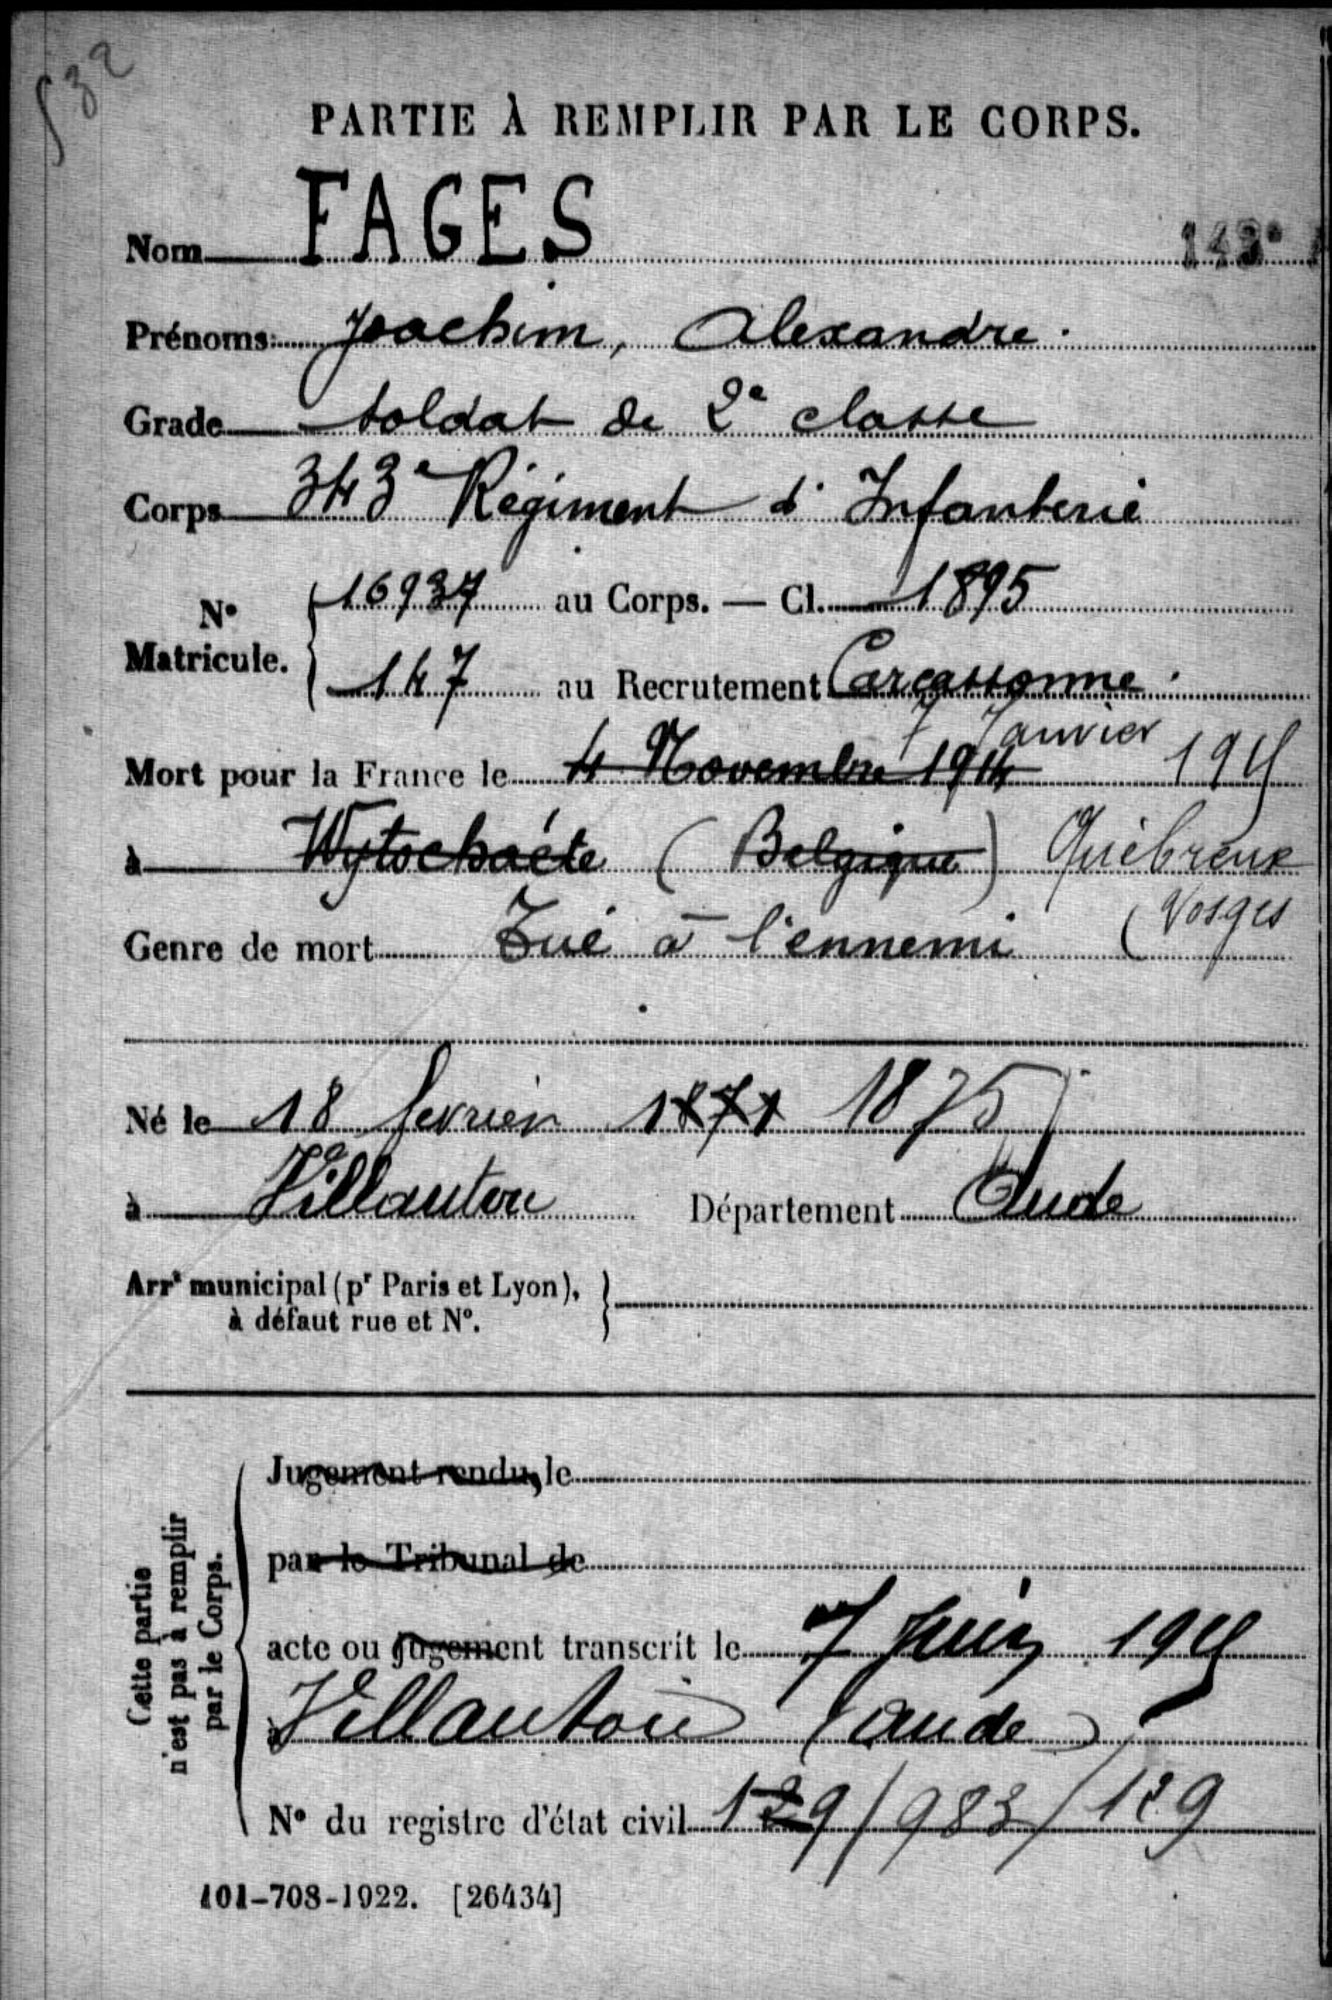 532
PARTIE À REMPLIR PAR LE CORPS.
Nom FAGES 143e
Prénoms: Joachim, Alexandre.
Grade Soldat de 2e classe
Corps 343e Régiment d'Infanterie
No Matricule. { 16937 au Corps. — Cl. 1895
147 au Recrutement Carcassonne.
7 Janvier 1915
Mort pour la France le 4 Novembre 1914
à Wytschaéte (Belgique) Quiébreux
(Vosges
Genre de mort Tué à l'ennemi
Né le 18 février 1871 1875
à Villautou Département Aude
Arrt municipal (pr Paris et Lyon),
à défaut rue et No. }
Cette partie
n'est pas à remplir
par le Corps.
Jugement rendu, le
par le Tribunal de
acte ou jugement transcrit le 7 Juin 1915
à Villautou (Aude)
No du registre d'état civil 129/983/129
101-708-1922. [26434]